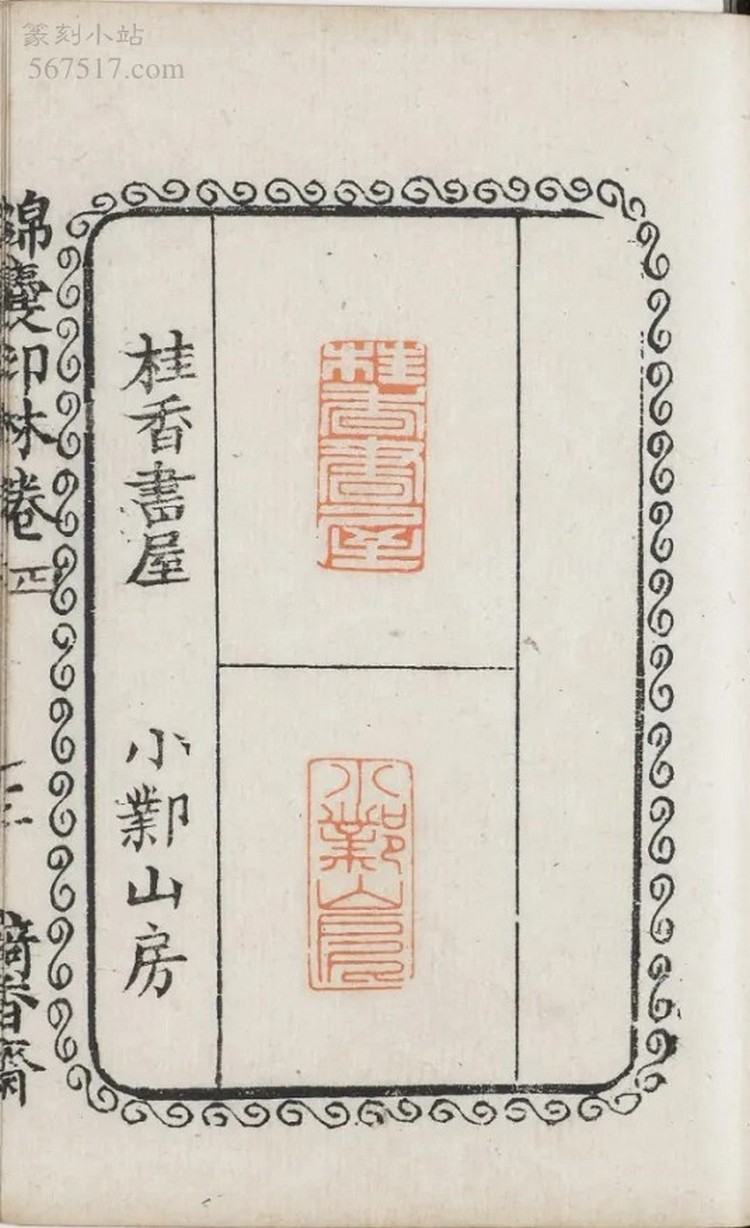 篆刻小站
567517.com
桂香書屋
小鄴山房
桂香書屋
小鄴山房
錦囊印林卷
香齋